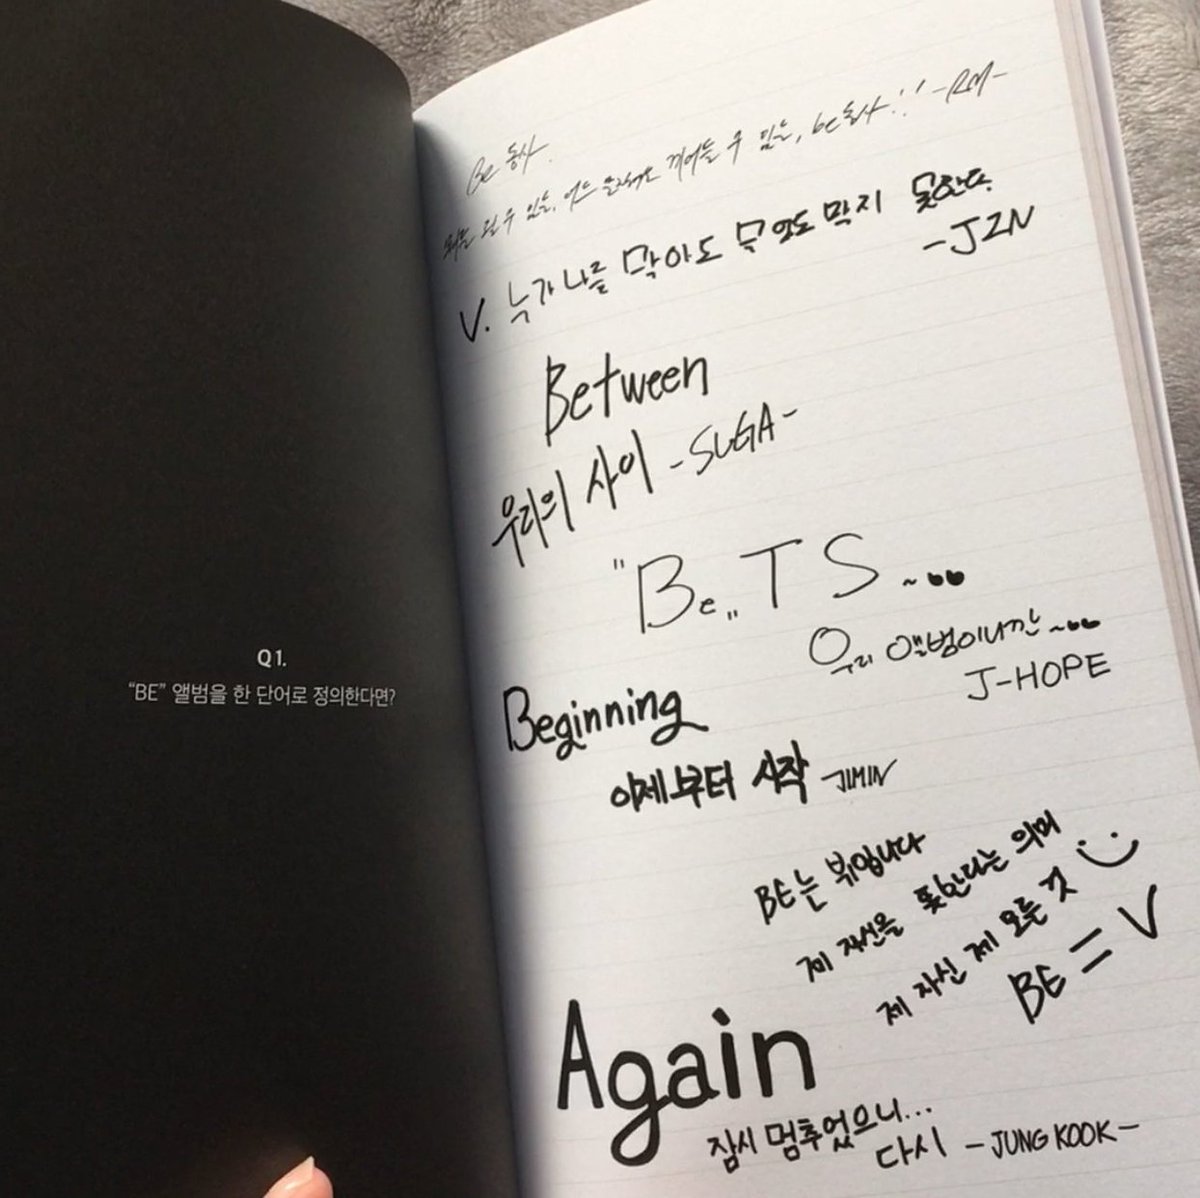 Q1.
"BE" 앨범을 한 단어로 정의한다면?
Be 동사.
뭐든 될 수 있는, 어느 문장에도 끼어들 수 있는, be동사!! -RM-
V. 누가 나를 막아도 무엇도 막지 못한다.
-JIN
Between
우리의 사이 -SUGA-
"Be" TS ~
우리 앨범이니깐 ~
J-HOPE
Beginning
이제부터 시작 -JIMIN
BE는 뷔입니다
제 자신을 뜻한다는 의미
제 자신 제 모든 것
BE = V
Again
잠시 멈추었으니...
다시 -JUNG KOOK-